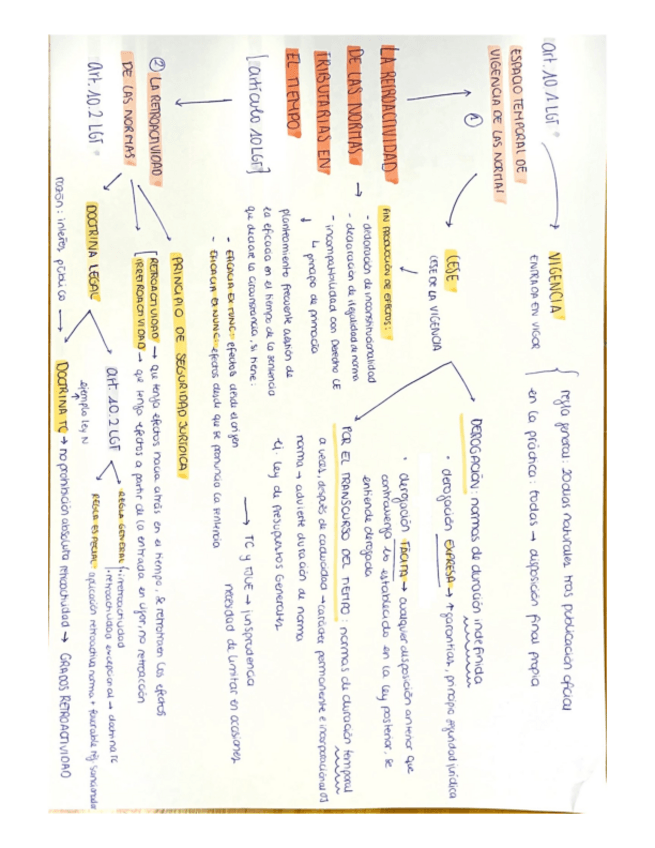 LA RETROACTIVIDAD
DE LAS NORMAS
TRIBUTARIAS EN
EL TIEMPO
[artículo 10 LGT]
①
ESPACIO TEMPORAL DE
VIGENCIA DE LAS NORMAS
art. 10.1 LGT
VIGENCIA
ENTRADA EN VIGOR
regla general: 20 días naturales tras publicación oficial
en la práctica: todas → disposición final propia
CESE
CESE DE LA VIGENCIA
DEROGACIÓN: normas de duración indefinida
• derogación EXPRESA → + garantías, principio seguridad jurídica
• derogación TÁCITA → cualquier disposición anterior que
contravenga lo establecido en la ley posterior, se
entiende derogada
POR EL TRANSCURSO DEL TIEMPO: normas de duración temporal
a veces, después de caducidad → carácter permanente e
norma → advierte duración de norma
ej. Ley de Presupuestos Generales
FIN PRODUCCIÓN DE EFECTOS:
- declaración de inconstitucionalidad
- declaración de ilegalidad de norma
- incompatibilidad con Derecho UE
↳ principio de primacía
planteamiento frecuente cuestión de
la eficacia en el tiempo de la sentencia
que declare la circunstancia, si tiene:
- EFICACIA EX TUNC: efectos desde el origen
- EFICACIA EX NUNC: efectos desde que se pronuncia la sentencia
→ TC y TJUE → jurisprudencia
necesidad de limitar en ocasiones
② LA RETROACTIVIDAD
DE LAS NORMAS
art. 10.2 LGT
PRINCIPIO DE SEGURIDAD JURÍDICA
RETROACTIVIDAD → que tenga efectos hacia atrás en el tiempo, se retrotraen los efectos
IRRETROACTIVIDAD → que tenga efectos a partir de la entrada en vigor, no retroacción
DOCTRINA LEGAL
art. 10.2 LGT
ejemplo ley N
REGLA GENERAL: irretroactividad
retroactividad excepcional → doctrina TC
REGLA ESPECIAL: aplicación retroactiva norma + favorable rég. sancionador
razón: interés público → DOCTRINA TC → no prohibición absoluta retroactividad → GRADOS RETROACTIVIDAD